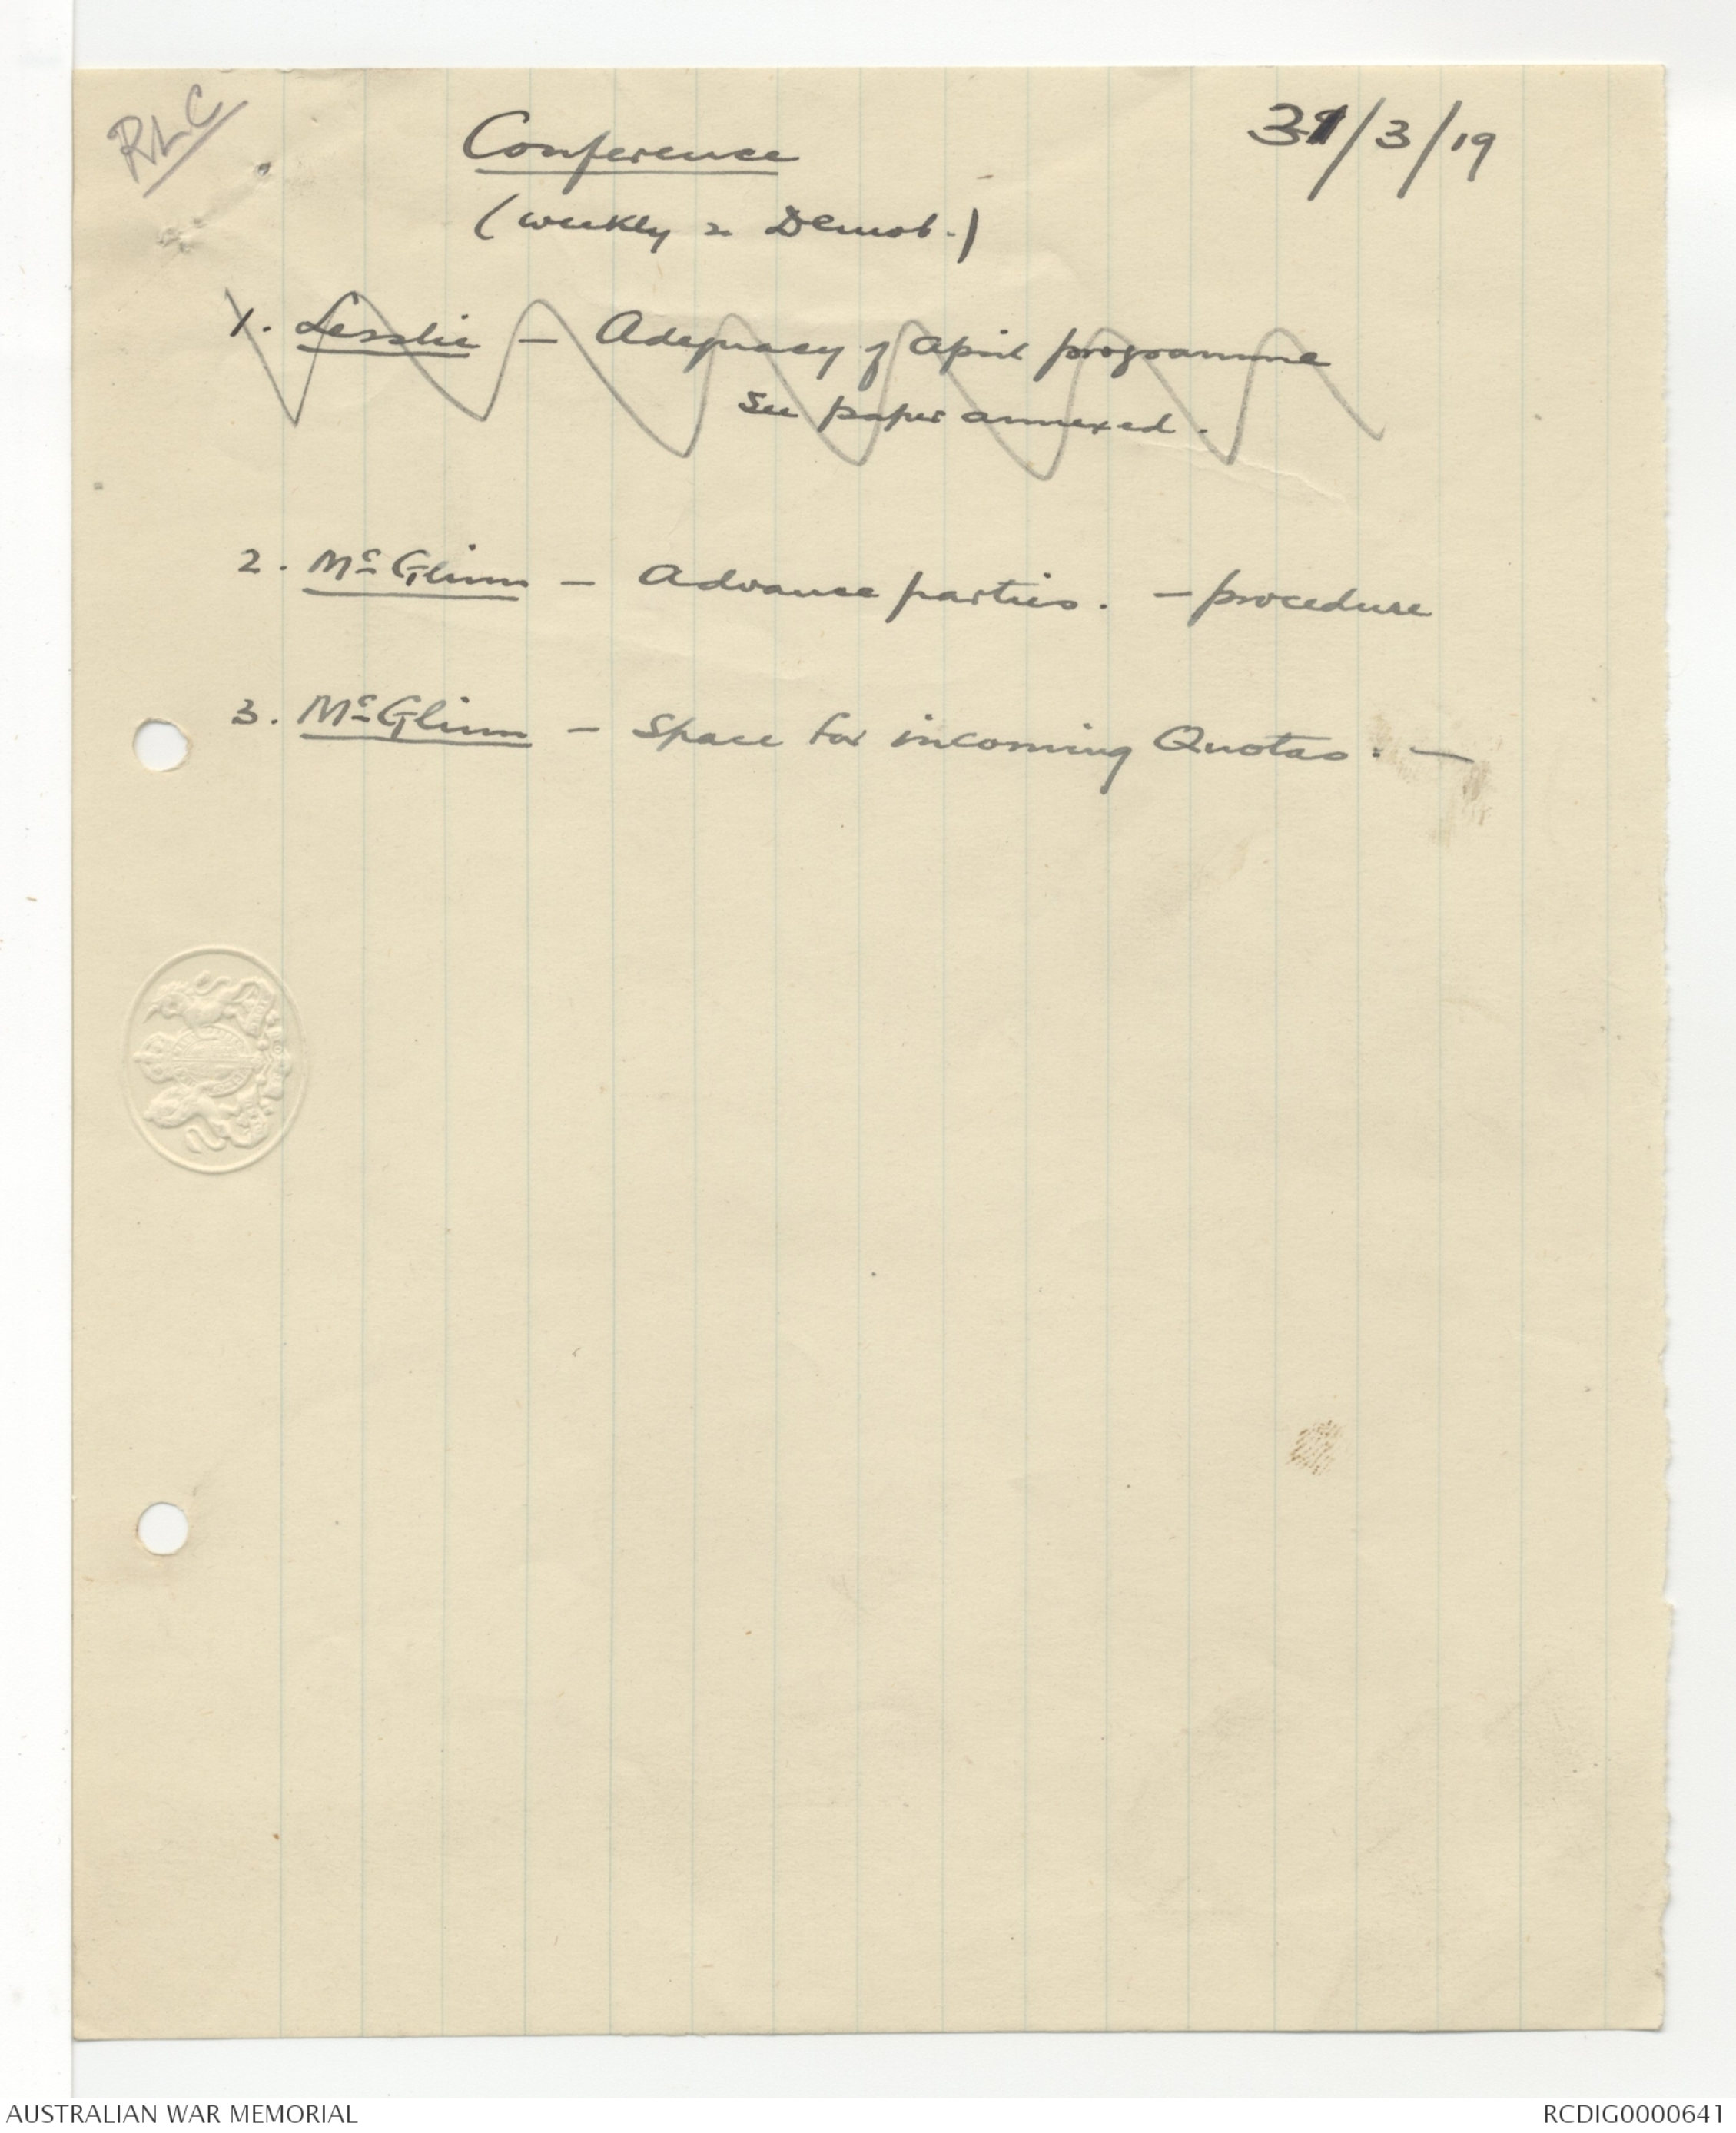 RLC
Conference
31/3/19
(weekly re Demob.)
1. Lesslie - Adequacy of April programme
See paper annexed.
2. McGlinn - Advance parties. - procedure
3. McGlinn - Space for incoming Quotas. -
AUSTRALIAN WAR MEMORIAL
RCDIG0000641